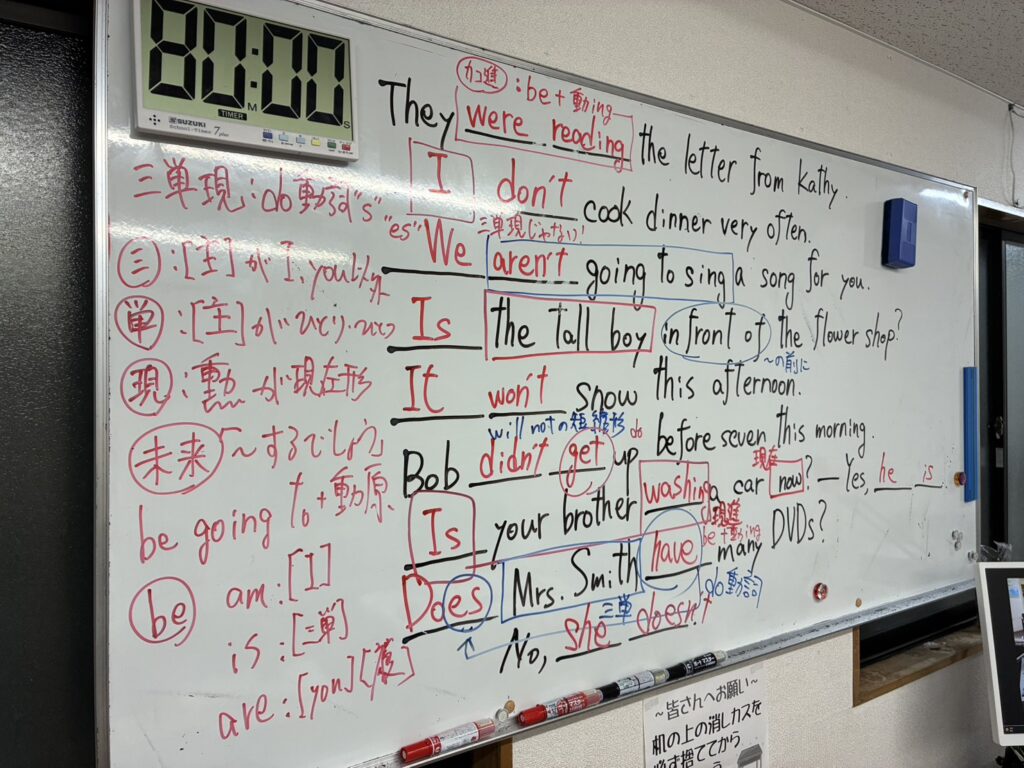 80:00
M
S
TIMER
SUZUKI
カコ進:be+動ing
They were reading the letter from Kathy.
I don't cook dinner very often.
三単現じゃない!
We aren't going to sing a song for you.
Is the tall boy in front of the flower shop?
~の前に
It won't snow this afternoon.
will notの短縮形
do
Bob didn't get up before seven this morning.
現在
Is your brother washing a car now? — Yes, he is.
現進
be+動ing
Does Mrs. Smith have many DVDs?
三単
do動詞
No, she doesn't
三単現:do動詞"s"
"es"
三:[主]がI、you以外
単:[主]がひとり・ひとつ
現:動が現在形
未来「~するでしょう」
be going to+動原
be
am:[I]
is:[三単]
are:[you][複]
~皆さんへお願い~
机の上の消しカスを
必ず捨ててから